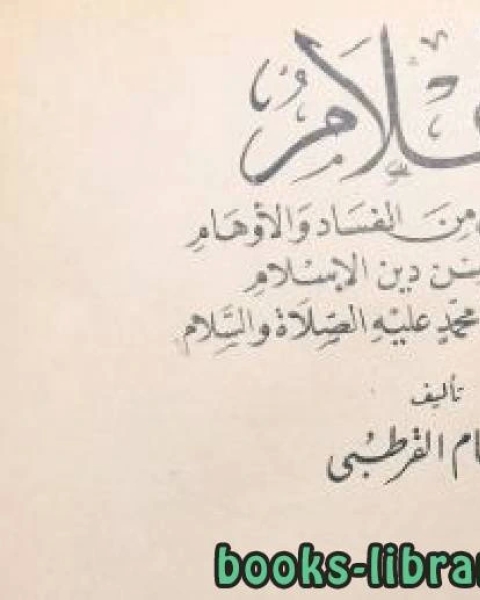 علامُ
مِنَ الفسَاد وَالأوهَامِ
دين الإسْلامِ
محمّدٍ عليْهِ الصِّلاة والسَّلام
تأليف
القرطبُى
books-librar